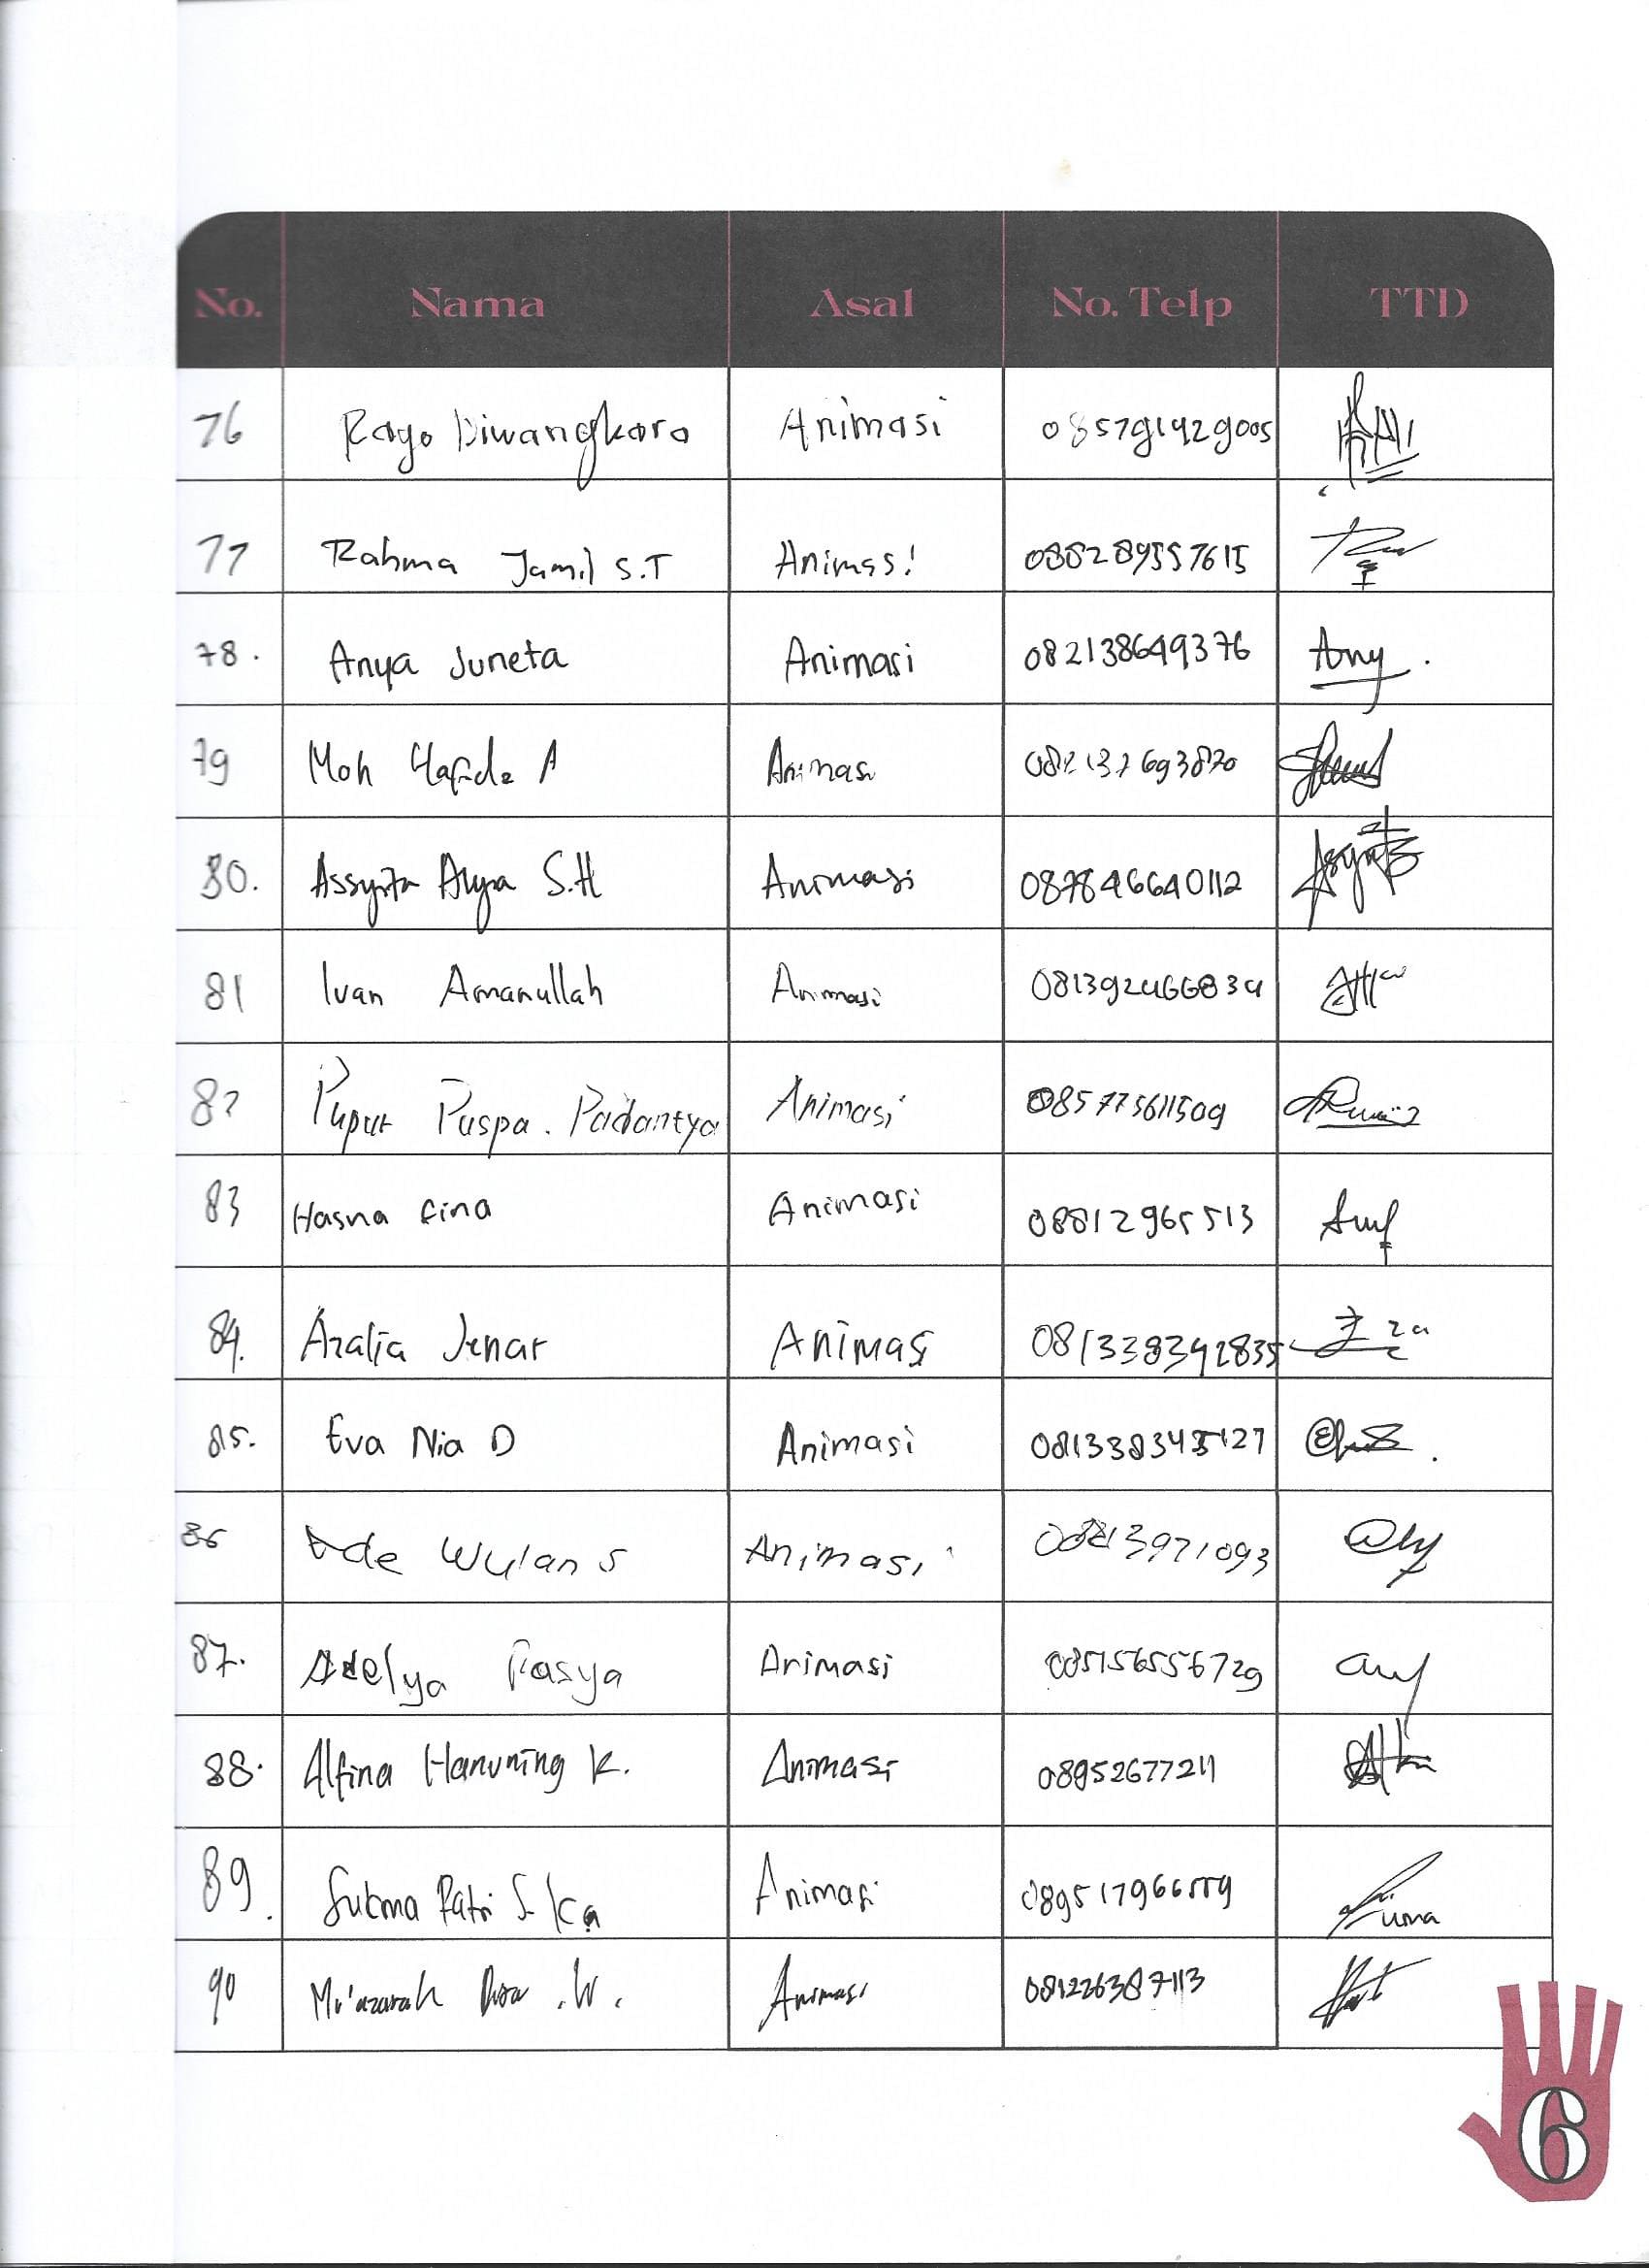 No. Nama Asal No. Telp TTD
76 Rayo Diwangkoro Animasi 085791929005
77 Rahma Jamil S.T Animasi 088289557615
78. Anya Juneta Animasi 082138649376
79 Moh Hafidz A Animasi 082137693870
80. Assyifa Alya S.H Animasi 087846640112
81 Ivan Amanullah Animasi
82 Puput Puspa. Padantya Animasi 085775611509
83 Hasna fina Animasi 08812965513
84. Azalia Jenar Animasi 081338392835
85. Eva Nia D Animasi
86 Ade Wulan S Animasi
87. Adelya Rasya Animasi 085156556729
88. Alfina Hanuning K. Animasi 08952677211
89. Sukma Animasi
90 Animasi 081226387113
6